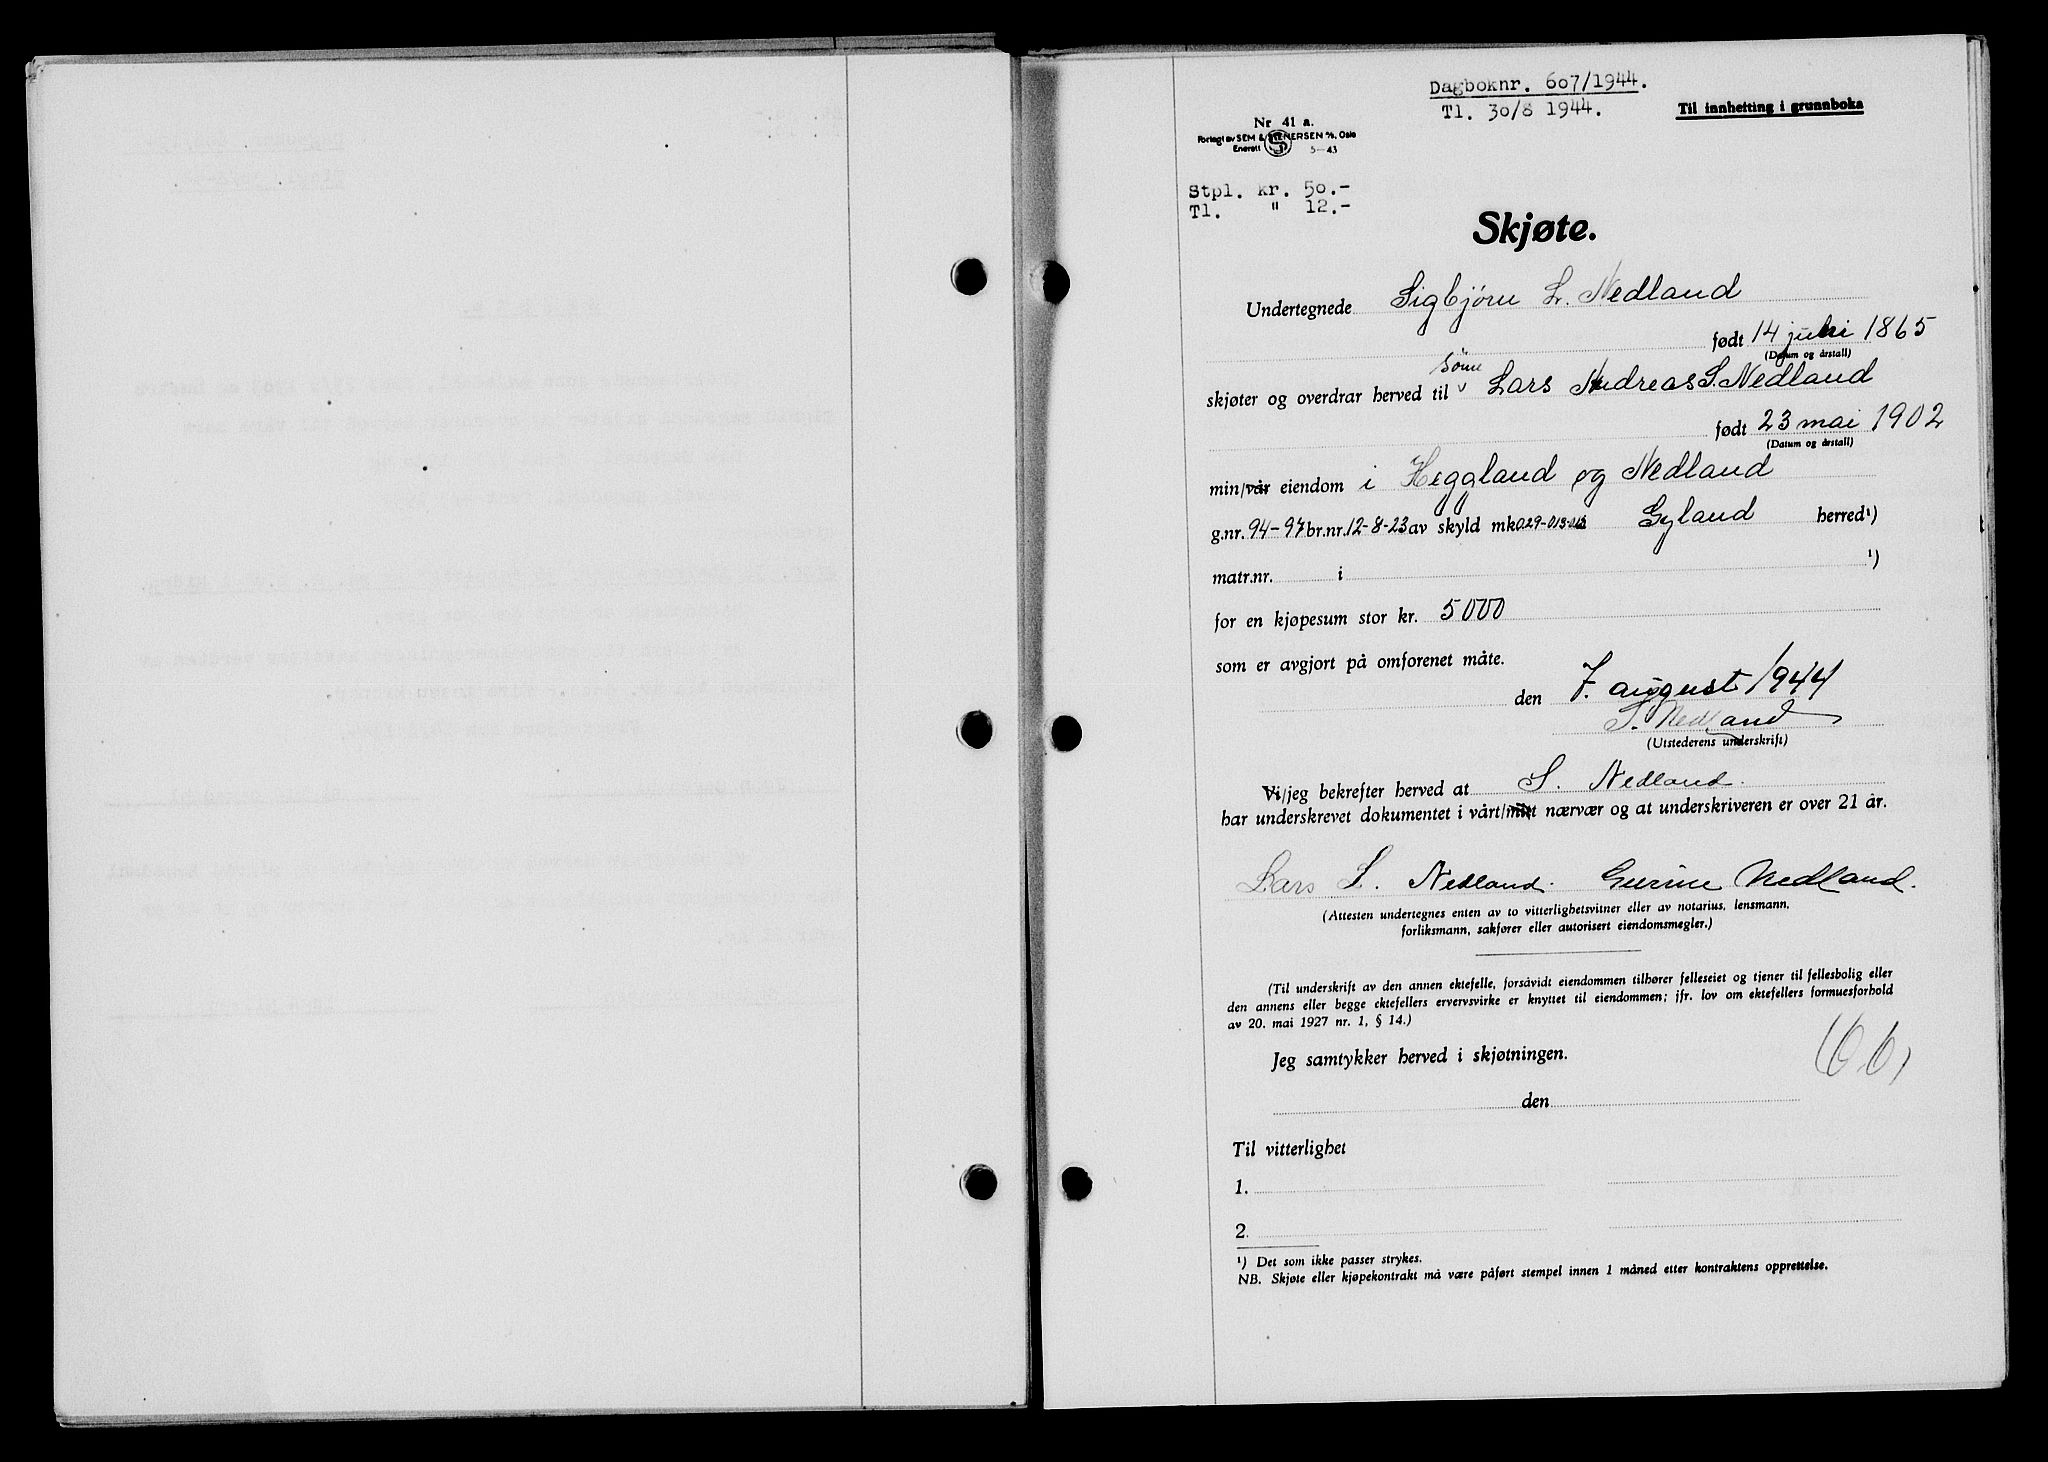 Dagboknr. 607/1944.
Tl. 30/8 1944.
Til innhetting i grunnboka
Nr 41 a.
Forlagt av SEM & STENERSEN A/S, Oslo
Enerett S 5-43
Stpl. kr. 50.-
Tl. " 12.-
Skjøte.
Undertegnede Sigbjørn L. Nedland
født 14 juli 1865
(Datum og årstall)
sønn
skjøter og overdrar herved til v Lars Andreas S. Nedland
født 23 mai 1902
(Datum og årstall)
min/vår eiendom i Heggland og Nedland
g.nr. 94-97 br.nr. 12-8-23 av skyld mk 0.29-013- Gyland herred¹)
matr.nr. i ¹)
for en kjøpesum stor kr. 5000
som er avgjort på omforenet måte.
den 7. august 1944
S. Nedland
(Utstederens underskrift)
Vi/jeg bekrefter herved at S. Nedland.
har underskrevet dokumentet i vårt/mitt nærvær og at underskriveren er over 21 år.
Lars S. Nedland. Gurine Nedland.
(Attesten undertegnes enten av to vitterlighetsvitner eller av notarius, lensmann,
forliksmann, sakfører eller autorisert eiendomsmegler.)
(Til underskrift av den annen ektefelle, forsåvidt eiendommen tilhører felleseiet og tjener til fellesbolig eller
den annens eller begge ektefellers ervervsvirke er knyttet til eiendommen; jfr. lov om ektefellers formuesforhold
av 20. mai 1927 nr. 1, § 14.)
Jeg samtykker herved i skjøtningen.
den
Til vitterlighet
1.
2.
¹) Det som ikke passer strykes.
NB. Skjøte eller kjøpekontrakt må være påført stempel innen 1 måned etter kontraktens opprettelse.